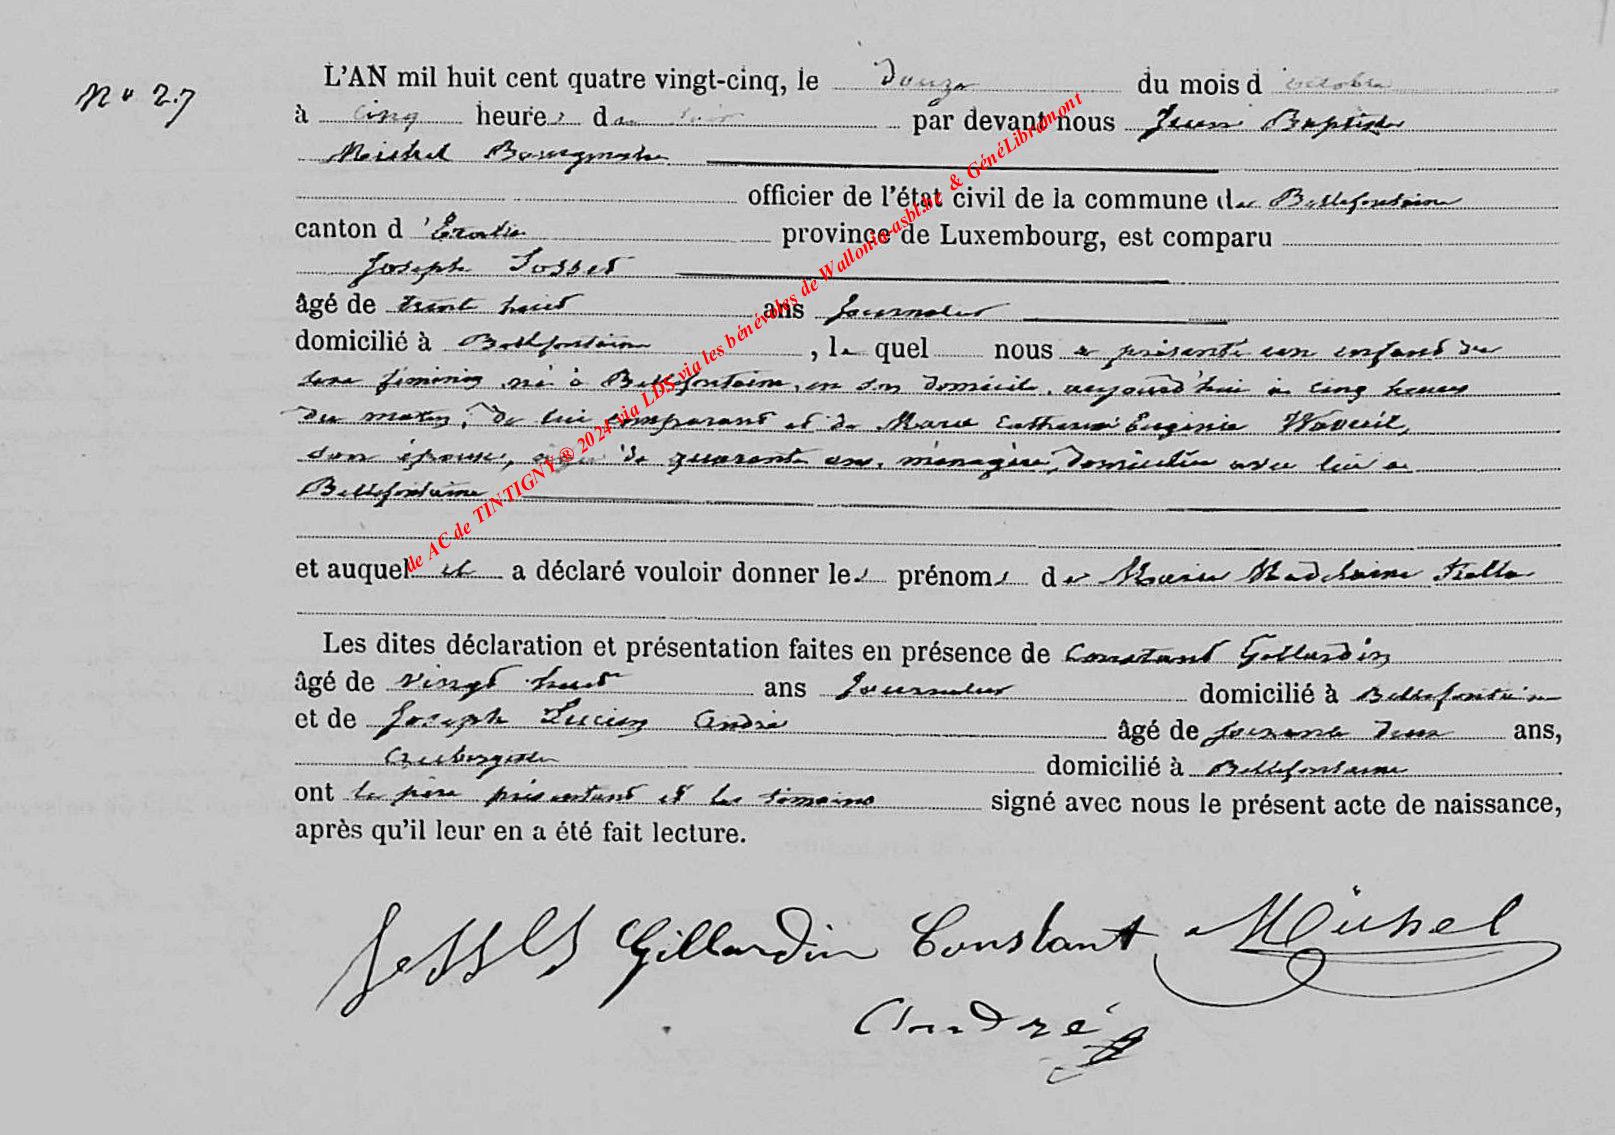 No 27
L'AN mil huit cent quatre vingt-cinq, le Douze du mois d'octobre
à cinq heures du soir par devant nous Jean Baptiste
Michel Bourgmestre
officier de l'état civil de la commune de Bellefontaine
canton d'Etalle province de Luxembourg, est comparu
Joseph Sosset
âgé de trent huit ans Journalier
domicilié à Bellefontaine, le quel nous a présenté un enfant du
sexe féminin, né à Bellefontaine, en son domicile, aujourd'hui à cinq heures
du matin, de lui comparant et de Marie Catherine Eugénie
son épouse, agée de quarante ans, ménagère, domiciliée avec lui à
Bellefontaine
et auquel il a déclaré vouloir donner les prénoms de Marie Madelaine
Les dites déclaration et présentation faites en présence de Constant Gillardin
âgé de vingt huit ans Journalier domicilié à Bellefontaine
et de Joseph Lucien André âgé de soixante deux ans,
Aubergiste domicilié à Bellefontaine
ont le père présentant et les témoins signé avec nous le présent acte de naissance,
après qu'il leur en a été fait lecture.
Gillardin Constant Michel
André
de AC de TINTIGNY ® 2024 via LDS via les bénévoles de Wallonia-asbl.be & GénéLibramont